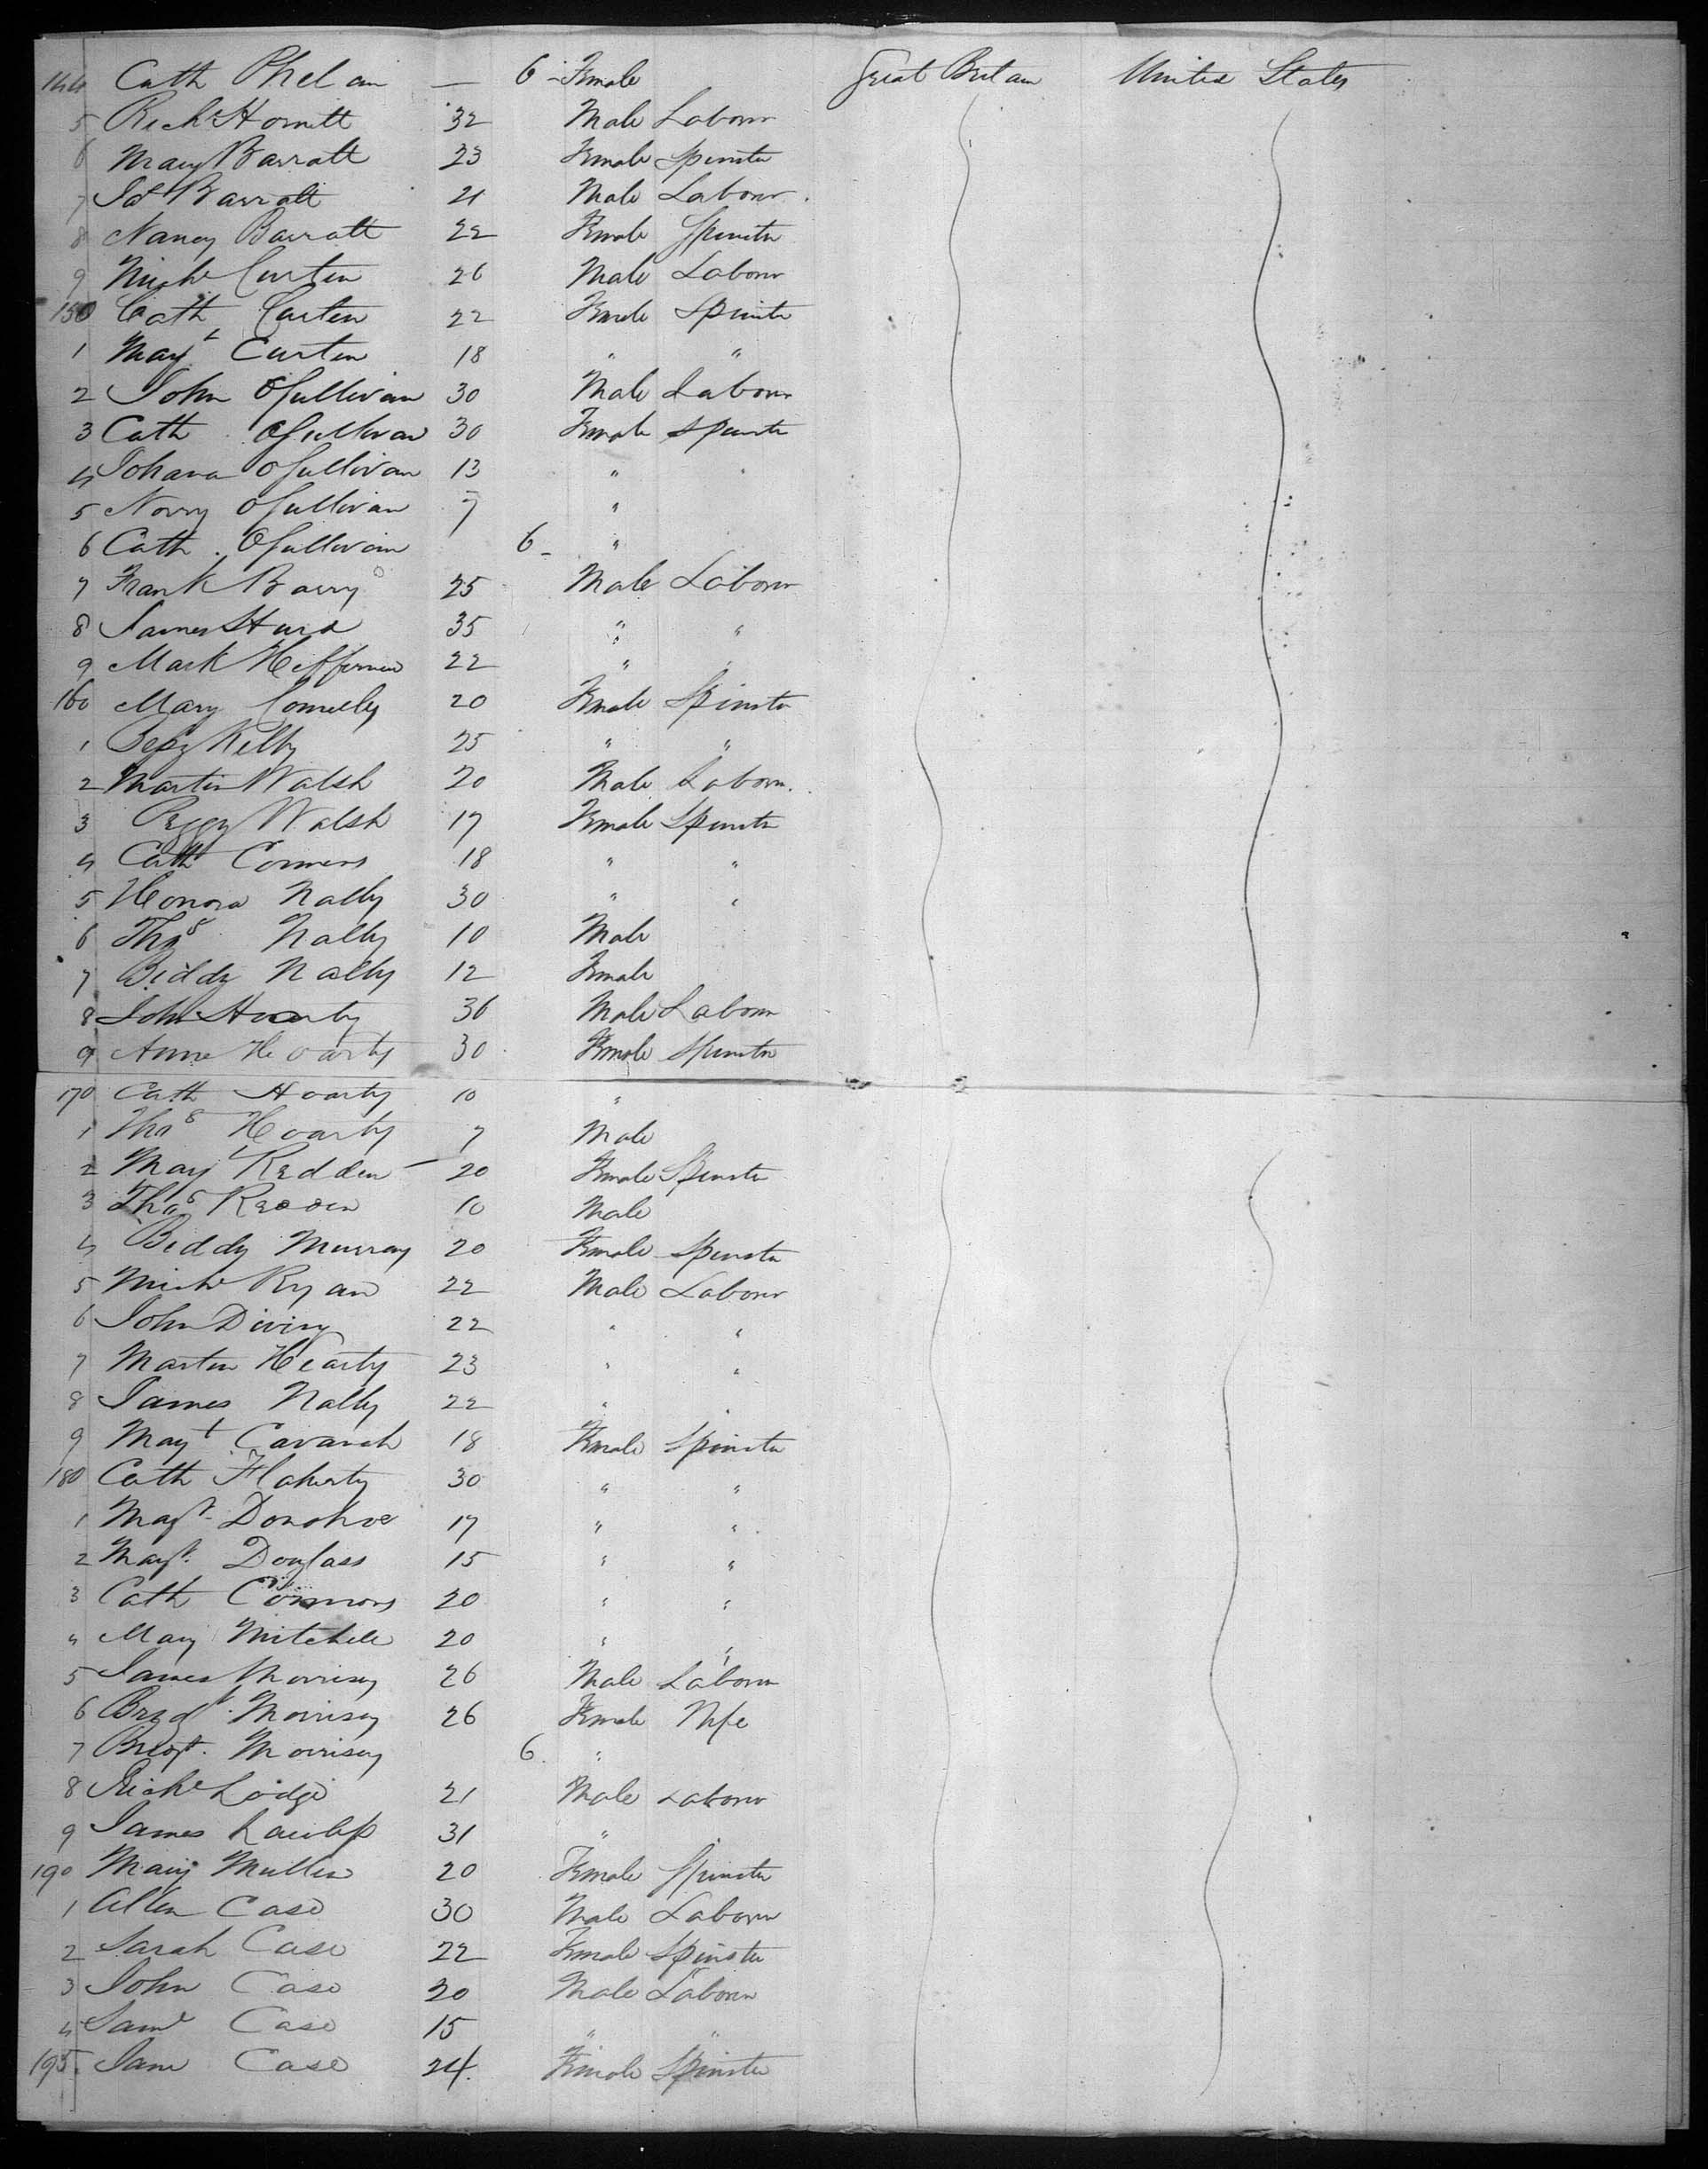 144 Cath Phelan — 6 - Female Great Britain United States
5 Richd Hornett 32 Male Labour
6 Mary Barratt 23 Female Spinster
7 Jas Barratt 21 Male Labour
8 Nancy Barratt 22 Female Spinster
9 Michl Curtin 26 Male Labour
150 Cath Curtin 22 Female Spinster
1 Magt Curtin 18 " "
2 John OSullivan 30 Male Labour
3 Cath OSullivan 30 Female Spinster
4 Johana OSullivan 13 "
5 Norry OSullivan 7 "
6 Cath OSullivan 6 - "
7 Frank Barry 25 Male Labour
8 James Hurd 35 " "
9 Mark Heffernan 22 " "
160 Mary Connelly 20 Female Spinster
1 Bessy Kelly 25 " "
2 Martin Walsh 20 Male Labour
3 Peggy Walsh 17 Female Spinster
4 Cath Connors 18 " "
5 Honora Nally 30 " "
6 Thos Nally 10 Male
7 Biddy Nally 12 Female
8 John Hoarty 36 Male Labour
9 Anne Hoarty 30 Female Spinster
170 Cath Hoarty 10 "
1 Thos Hoarty 7 Male
2 Magt Redden 20 Female Spinster
3 Thos Redden 10 Male
4 Biddy Murray 20 Female Spinster
5 Michl Ryan 22 Male Labour
6 John Diviny 22 " "
7 Martin Hearty 23 " "
8 James Nally 22 " "
9 Magt Cavanah 18 Female Spinster
180 Cath Flaherty 30 " "
1 Magt Donohoe 17 " "
2 Magt Douglass 15 " "
3 Cath Connors 20 " "
4 Mary Mitchell 20 " "
5 James Morrisey 26 Male Labour
6 Bridgt Morrisey 26 Female Wife
7 Bridgt Morrisey 6 "
8 Richd Lodge 21 Male Labour
9 James 31 "
190 Mary Mullen 20 Female Spinster
1 Allen Case 30 Male Labour
2 Sarah Case 22 Female Spinster
3 John Case 20 Male Labour
4 Saml Case 15 " "
195 Jane Case 24 Female Spinster